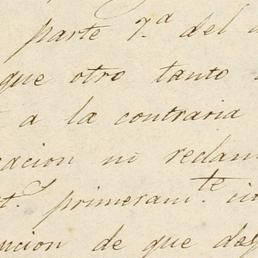 parte 7.ª del
que otro tanto
a la contraria
cacion ni reclam
primeram.te
de que